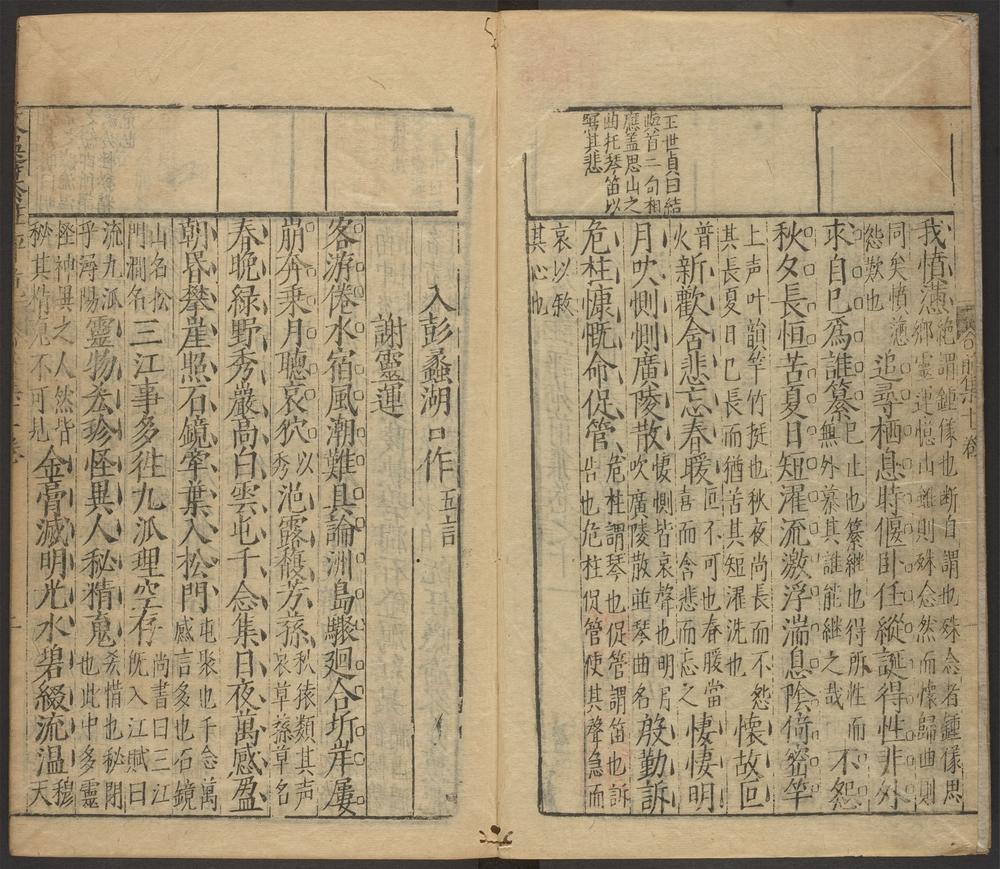 王世貞曰結
語首二句相
應蓋思山之
曲托琴笛以
寫其悲
我憤懣絕謂鍾儀也断自謂也殊念者鍾儀思
鄉靈運憶山雖則殊念然而懷歸曲則
同矣憤懣
怨歎也
追尋栖息時偃卧任縱誕得性非外
求自已爲誰纂
已止也纂繼也得所性而
無外慕其誰能継之哉
不怨
秋夕長恒苦夏日短濯流激浮湍息陰倚密竿
上声叶韻竿竹挺也秋夜尚長而不怨
其長夏日已長而猶苦其短濯洗也
懷故叵
普
火
新歡含悲忘春暖
叵不可也春暖當
喜而含悲而忘之
悽悽明
月吹惻惻廣陵散
悽惻皆哀聲也明月
吹廣陵散並琴曲名
殷勤訴
危柱慷慨命促管
危柱謂琴也促管謂笛也訴
告也危柱促管使其聲急而
哀以敘
其心也
入彭蠡湖口作五言
謝靈運
客游倦水宿風潮難具論洲島驟廻合圻岸屢
崩奔乗月聽哀狖
以
秀
浥露馥芳蓀
狖猿類其声
哀草蓀草名
春晚緑野秀巖高白雲屯千念集日夜萬感盈
朝昬攀崖照石鏡牽葉入松門
屯聚也千念萬
感言多也石鏡
山名松
門澗名
三江事多徃九派理空存
尚書曰三江
既入江賦曰
流九派
乎潯陽
靈物吝珍怪異人秘精䰟
吝惜也秘閉
也此中多靈
怪神異之人然皆
秘其精䰟不可見
金膏滅明光水碧綴流温
穆
天